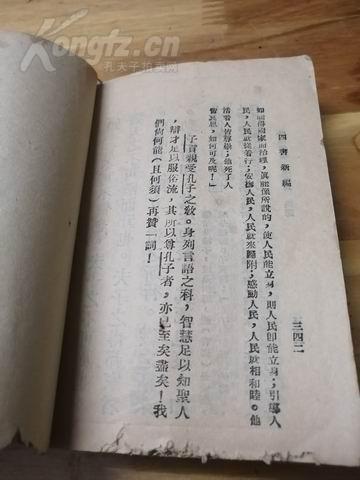 Kongfz.cn
孔夫子拍卖网
四書新編
三四二
如能得國家而治理，眞能像所說的，使人民能立身，則人民卽能立身；引導人
民，人民就從着行；安撫人民，人民就來歸附；感動人民，人民就相和睦。他
活着人皆尊榮；他死了人
皆哀思，如何可及呢！」
子貢親受孔子之敎。身列言語之科，智慧足以知聖人
，辯才足以服俗流，其所以尊孔子者，亦已至矣盡矣！我
們尙何能（且何須）再贊一詞！